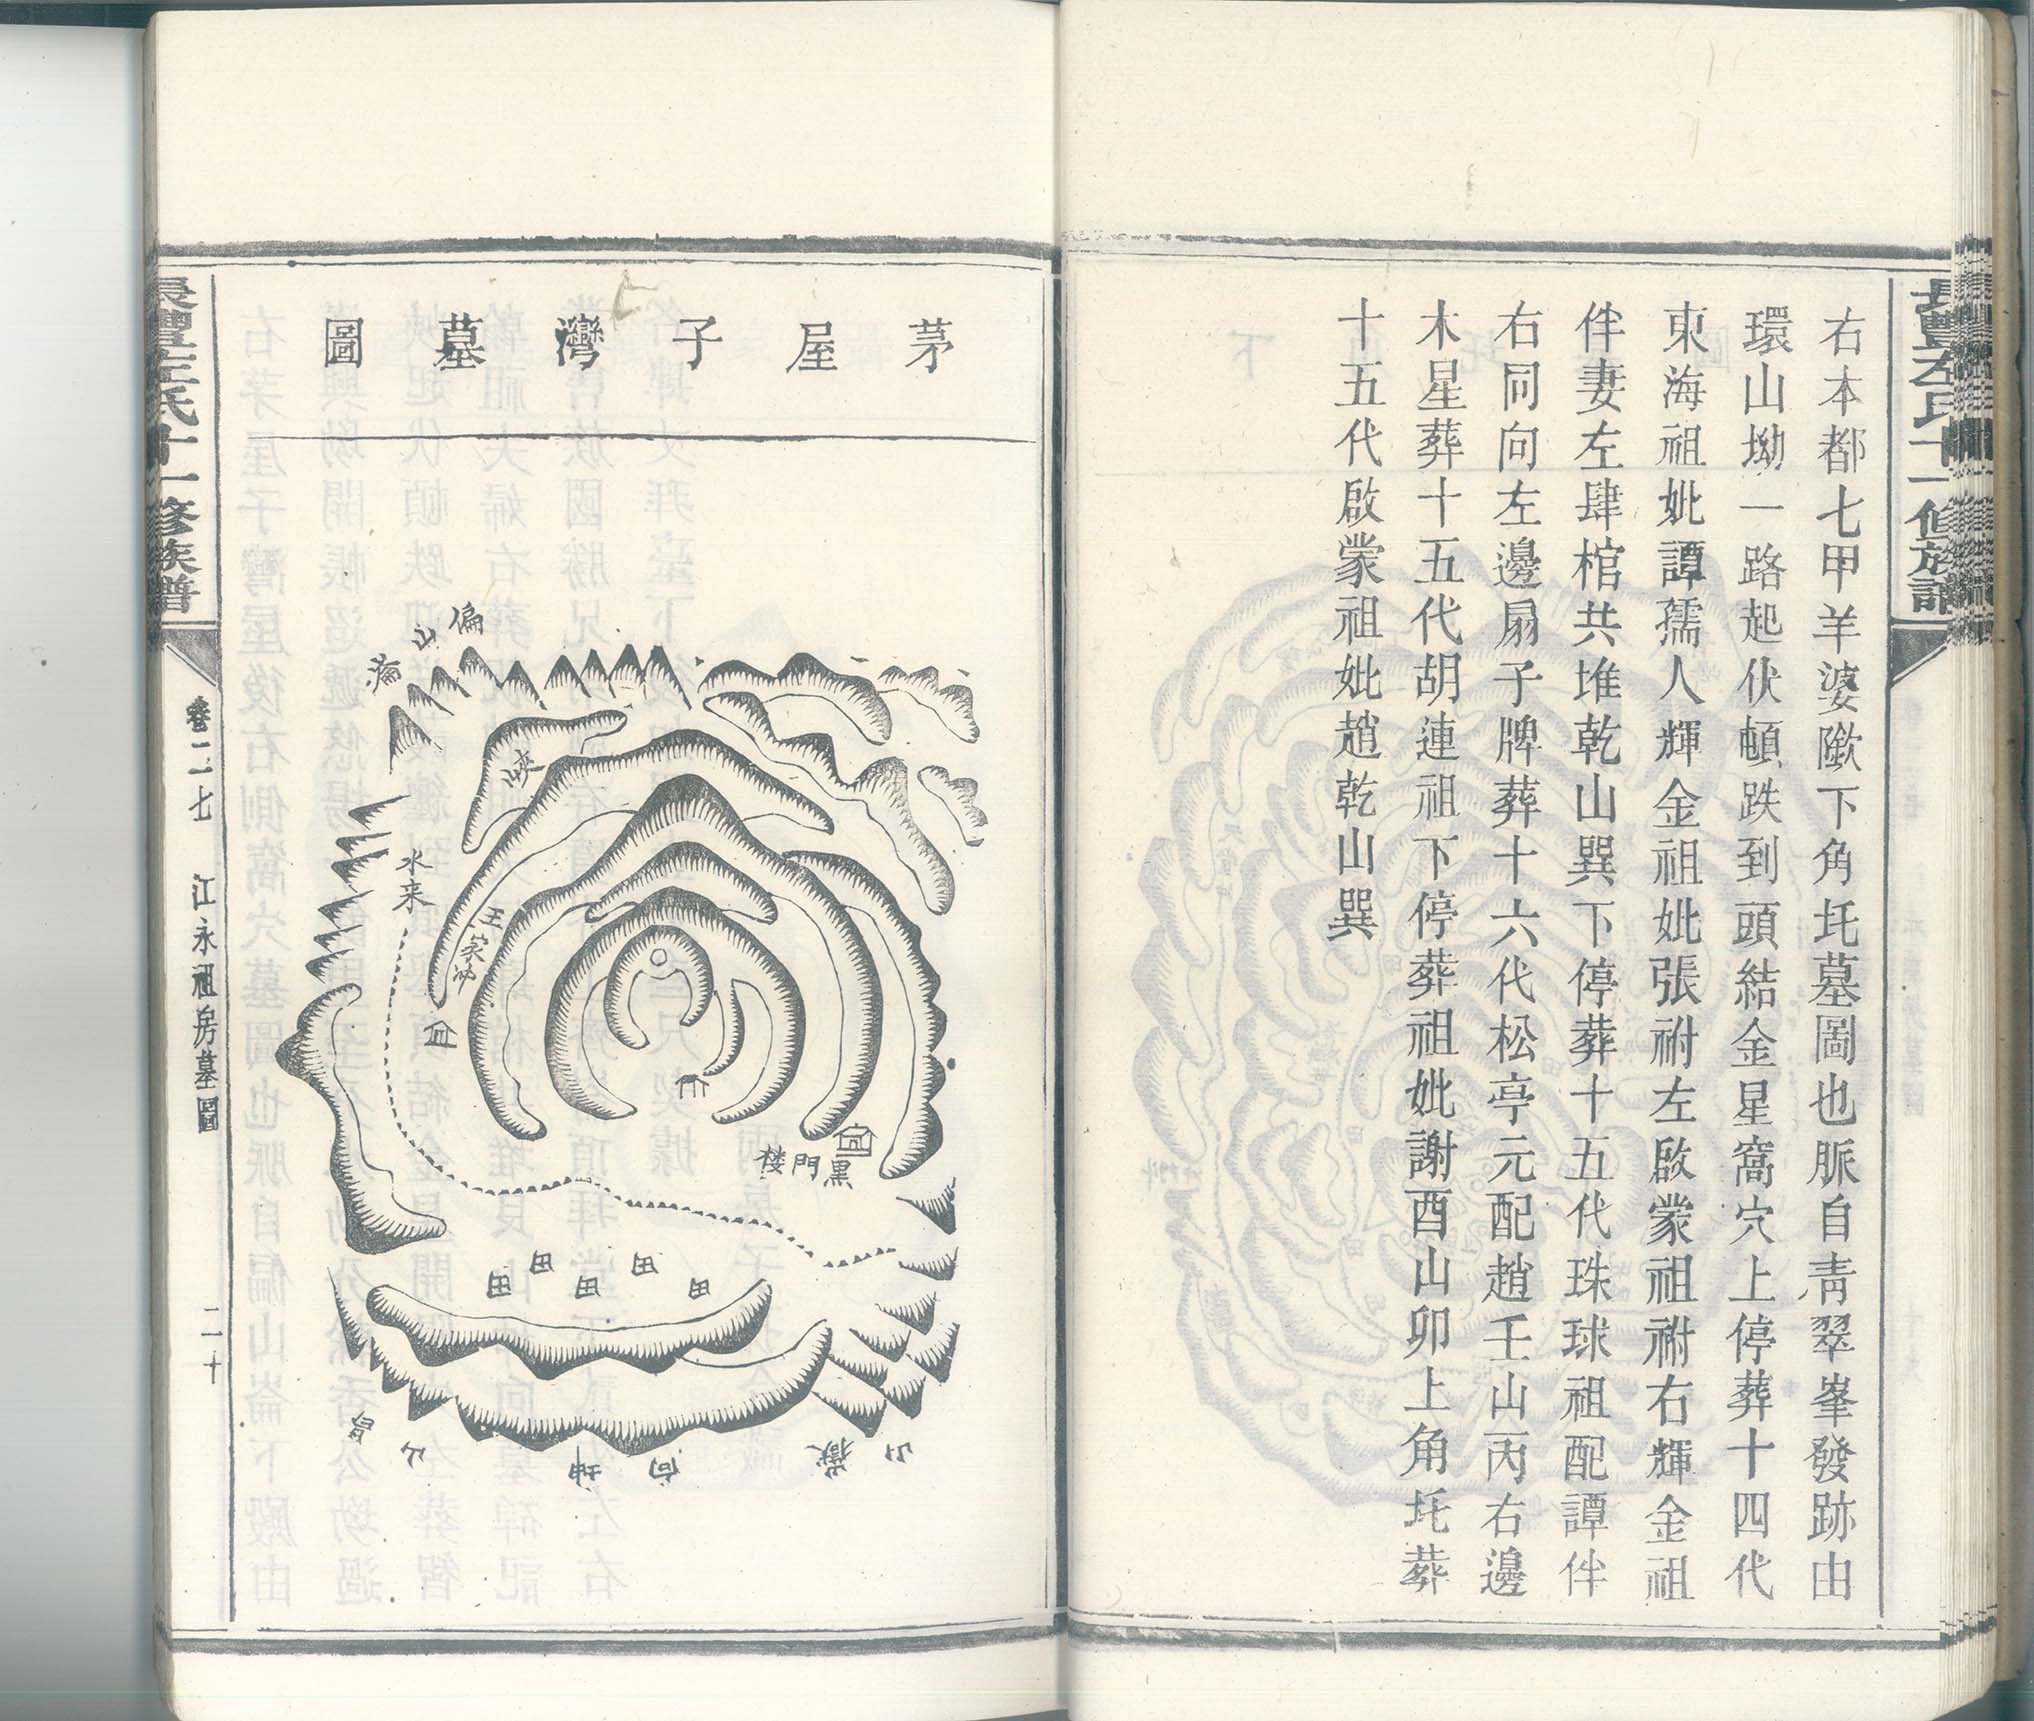 長豐左氏十一修族譜
右本都七甲羊婆隞下角圫墓圖也脈自靑翠峯發跡由
環山坳一路起伏頓跌到頭結金星窩穴上停葬十四代
東海祖妣譚孺人輝金祖妣張祔左啟蒙祖祔右輝金祖
伴妻左肆棺共堆乾山巽下停葬十五代珠球祖配譚伴
右同向左邊扇子牌葬十六代松亭元配趙壬山丙右邊
木星葬十五代胡連祖下停葬祖妣謝酉山卯上角圫葬
十五代啟蒙祖妣趙乾山巽
茅屋子灣墓圖
偏山崙
峽
水来
王家冲
黑門楼
田
田
田
田
田
山嶽
向
坤
山
長豐左氏十一修族譜
卷二七 江永祖房墓圖 二十